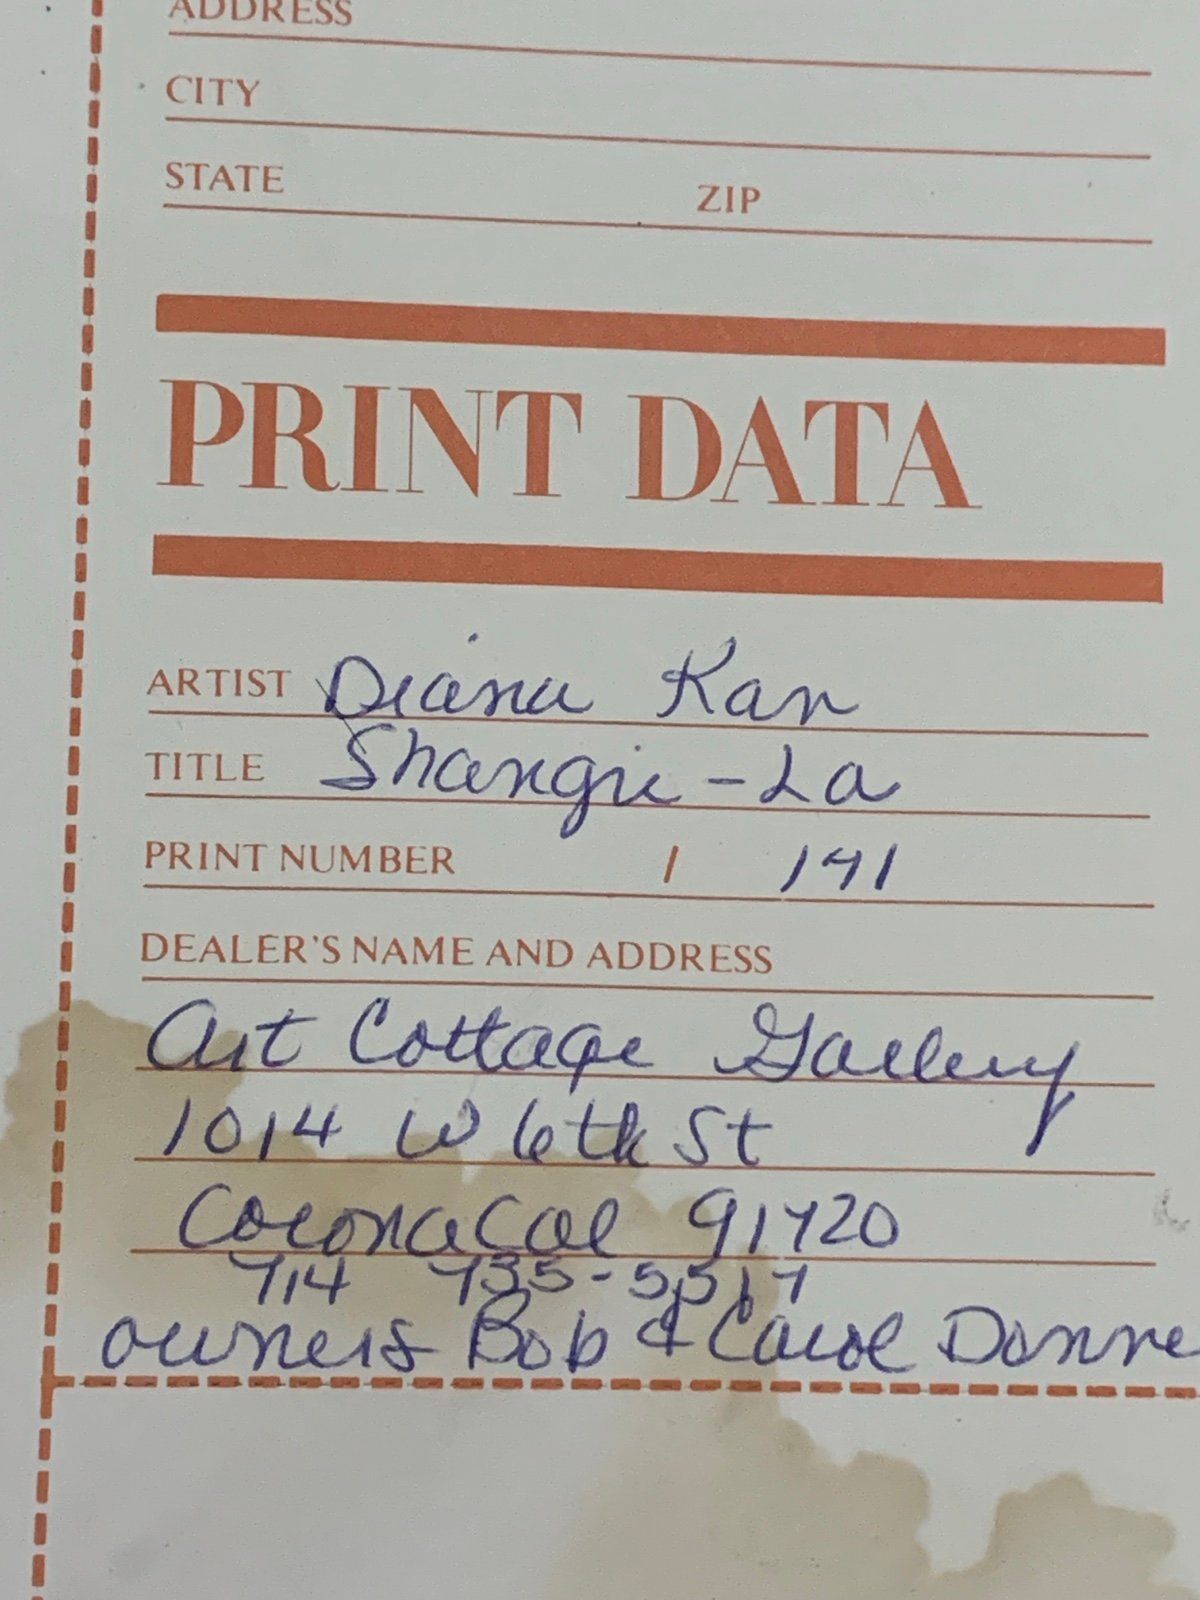 ADDRESS
CITY
STATE ZIP
PRINT DATA
ARTIST Diana Kan
TITLE Shangri-La
PRINT NUMBER /
DEALER'S NAME AND ADDRESS
Art Cottage Gallery
1014 W 6th St
Corona Cal 91720
714 735-5517
owners Bob & Carol Donne